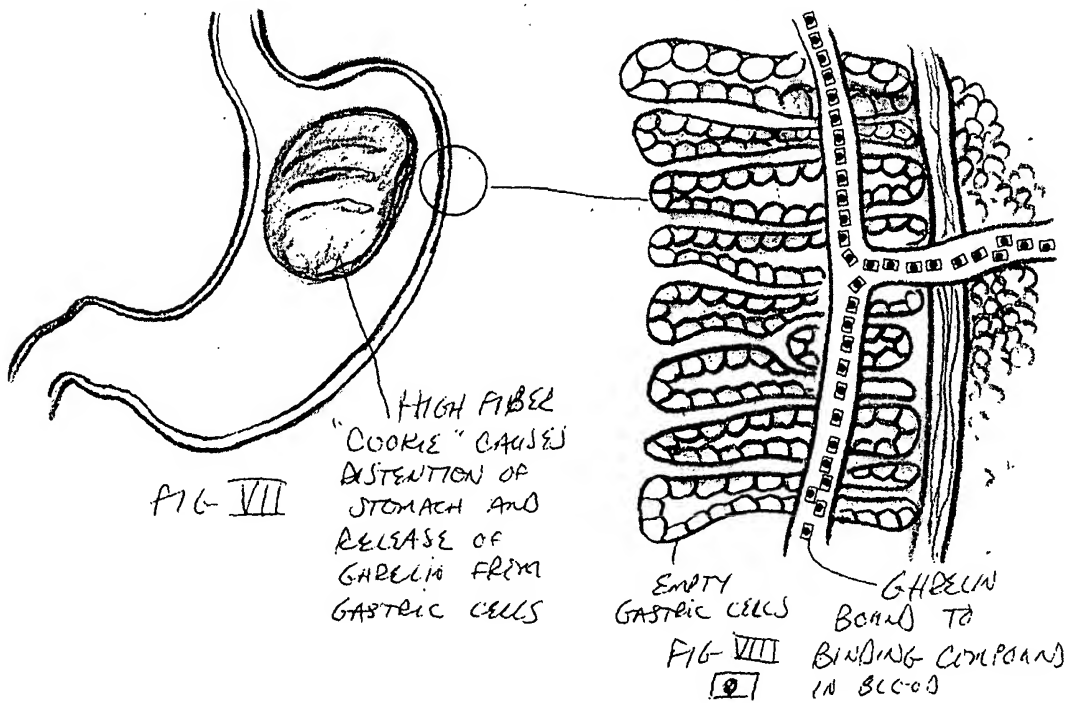 HIGH FIBER
"COOKIE" CAUSES
DISTENTION OF
STOMACH AND
RELEASE OF
GHRELIN FROM
GASTRIC CELLS
FIG VII
EMPTY
GASTRIC CELLS
GHRELIN
BOUND TO
BINDING COMPOUND
IN BLOOD
FIG VIII